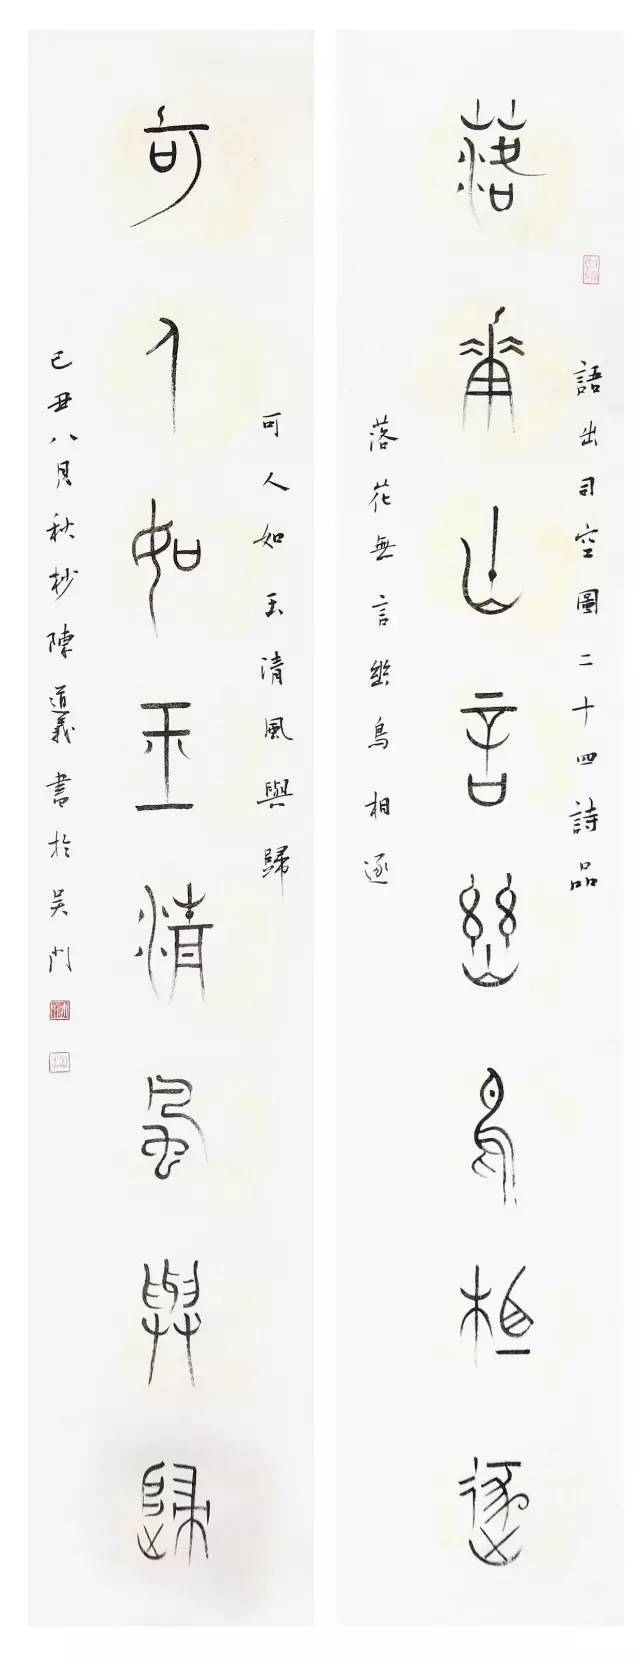 語出司空圖二十四詩品
落花無言幽鳥相逐
落花無言幽鳥相逐
可人如玉清風與歸
可人如玉清風與歸
己丑八月秋杪陳道義書於吴門